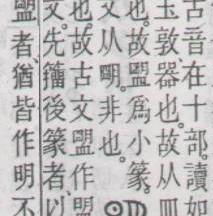 古音在十部。讀如
玉敦器也。故从皿
也。故盟爲小篆。𐊾
文从朙。非也。
也。故古文盟作盟
文。先籒後篆者、以
盟者、猶皆作明不